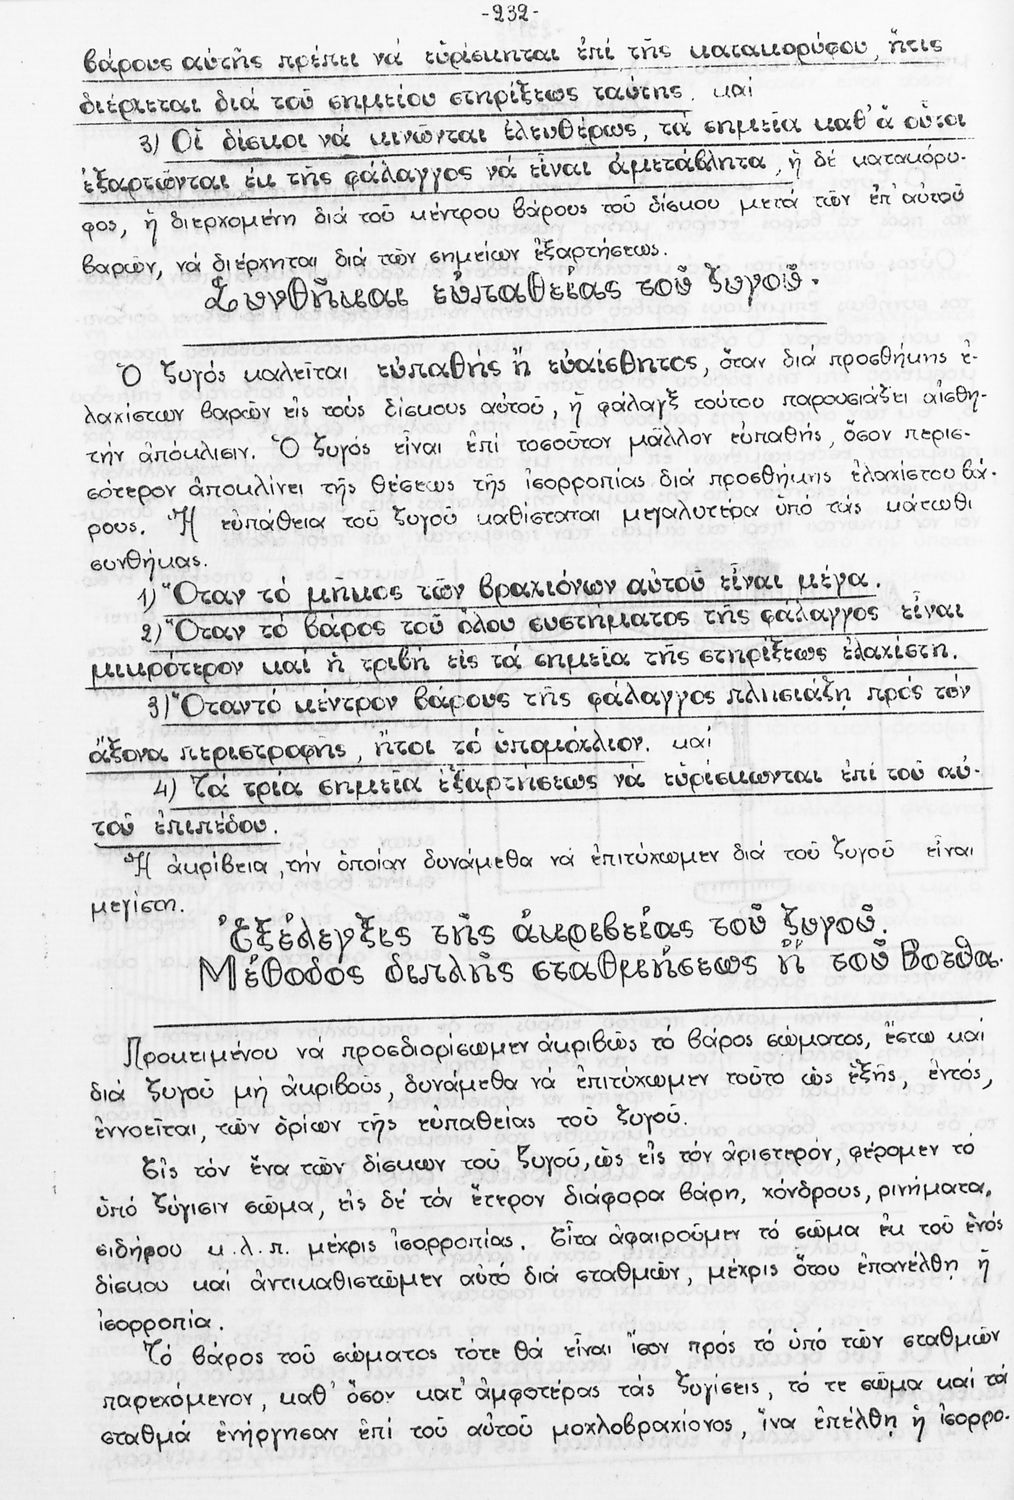 -232-
βάρους αὐτῆς πρέπει νά εὑρίσκηται ἐπί τῆς κατακορύφου, ἥτις
διέρχεται διά τοῦ σημείου στηρίξεως ταύτης. καί
3) Οἱ δίσκοι νά κινῶνται ἐλευθέρως, τά σημεῖα καθ' ἅ οὗτοι
ἐξαρτῶνται ἐκ τῆς φάλαγγος νά εἶναι ἀμετάβλητα, ἡ δέ κατακόρυ-
φος, ἡ διερχομένη διά τοῦ κέντρου βάρους τοῦ δίσκου μετά τῶν ἐπ' αὐτοῦ
βαρῶν, νά διέρχηται διά τῶν σημείων ἐξαρτήσεως.
Συνθῆκαι εὐπαθείας τοῦ ζυγοῦ.
Ὁ ζυγός καλεῖται εὐπαθής ἤ εὐαίσθητος, ὅταν διά προσθήκης ἐ-
λαχίστων βαρῶν εἰς τούς δίσκους αὐτοῦ, ἡ φάλαγξ τούτου παρουσιάζει αἰσθη-
τήν ἀπόκλισιν. Ὁ ζυγός εἶναι ἐπί τοσοῦτον μᾶλλον εὐπαθής, ὅσον περισ-
σότερον ἀποκλίνει τῆς θέσεως τῆς ἰσορροπίας διά προσθήκης ἐλαχίστου βά-
ρους. Ἡ εὐπάθεια τοῦ ζυγοῦ καθίσταται μεγαλυτέρα ὑπό τάς κάτωθι
συνθήκας.
1) Ὅταν τό μῆκος τῶν βραχιόνων αὐτοῦ εἶναι μέγα.
2) Ὅταν τό βάρος τοῦ ὅλου συστήματος τῆς φάλαγγος εἶναι
μικρότερον καί ἡ τριβή εἰς τά σημεῖα τῆς στηρίξεως ἐλαχίστη.
3) Ὅταν τό κέντρον βάρους τῆς φάλαγγος πλησιάζῃ πρός τόν
ἄξονα περιστροφῆς, ἤτοι τό ὑπομόχλιον. καί
4) Τά τρία σημεῖα ἐξαρτήσεως νά εὑρίσκωνται ἐπί τοῦ αὐ-
τοῦ ἐπιπέδου.
Ἡ ἀκρίβεια, τήν ὁποίαν δυνάμεθα νά ἐπιτύχωμεν διά τοῦ ζυγοῦ εἶναι
μεγίστη.
Ἐξέλεγξις τῆς ἀκριβείας τοῦ ζυγοῦ.
Μέθοδος διπλῆς σταθμήσεως ἤ τοῦ Borda.
Προκειμένου νά προσδιορίσωμεν ἀκριβῶς τό βάρος σώματος, ἔστω καί
διά ζυγοῦ μή ἀκριβοῦς, δυνάμεθα νά ἐπιτύχωμεν τοῦτο ὡς ἑξῆς, ἐντός,
ἐννοεῖται, τῶν ὁρίων τῆς εὐπαθείας τοῦ ζυγοῦ.
Εἰς τόν ἕνα τῶν δίσκων τοῦ ζυγοῦ, ὡς εἰς τόν ἀριστερόν, φέρομεν τό
ὑπό ζύγισιν σῶμα, εἰς δέ τόν ἕτερον διάφορα βάρη, χόνδρους, ρινήματα,
σιδήρου κ.λ.π. μέχρις ἰσορροπίας. Εἶτα ἀφαιροῦμεν τό σῶμα ἐκ τοῦ ἑνός
δίσκου καί ἀντικαθιστῶμεν αὐτό διά σταθμῶν, μέχρις ὅτου ἐπανέλθῃ ἡ
ἰσορροπία.
Τό βάρος τοῦ σώματος τότε θά εἶναι ἴσον πρός τό ὑπό τῶν σταθμῶν
παρεχόμενον, καθ' ὅσον κατ' ἀμφοτέρας τάς ζυγίσεις, τό τε σῶμα καί τά
σταθμά ἐνήργησαν ἐπί τοῦ αὐτοῦ μοχλοβραχίονος, ἵνα ἐπέλθῃ ἡ ἰσορρο-